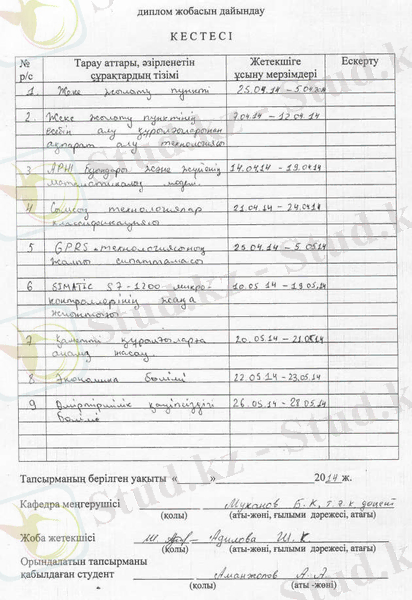 диплом жобасын дайындау
КЕСТЕСІ
№ р/с
Тарау аттары, әзірленетін сұрақтардың тізімі
Жетекшіге ұсыну мерзімдері
Ескерту
1 Жеке жылыту пункті 25.04.14 – 5.04.14
2. Жеке жылыту пунктінің 7.04.14 – 12.04.14
есебін алу құралғыларынан
ақпарат алу технологиясы
3 АРЖ және жүйенің 14.04.14 – 19.04.14
математикалық
4 Сымсыз технологиялар 21.04.14 – 24.04.14
классификациясы
5 GPRS технологиясының 25.04.14 – 5.05.14
жалпы сипаттамасы
6 SIMATIC S7-1200 микро- 10.05.14 – 19.05.14
контроллерінің жаңа
7 құралғыларға 20.05.14 – 21.05.14
жасау
8 Экономика бөлімі 22.05.14 – 23.05.14
9 Өміртіршілік қауіпсіздігі 26.05.14 – 28.05.14
бөлімі
Тапсырманың берілген уақыты «____» ________ 2014 ж.
Кафедра меңгерушісі Муханов Б.К, т.ғ.к доцент
(қолы) (аты-жөні, ғылыми дәрежесі, атағы)
Жоба жетекшісі Адилова Ш.К.
(қолы) (аты-жөні, ғылыми дәрежесі, атағы)
Орындалатын тапсырманы
қабылдаған студент Аманжолов А.А.
(қолы) (аты -жөні)
Stud.kz - Stud.kz